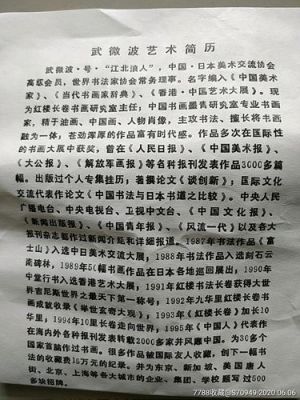 武微波艺术简历
武微波·号·“江北浪人”，中国·日本美术交流协会
高级会员、世界书法家协会常务理事。名字编入《中国美术
家》、《当代书画家辞典》、《香港·中国艺术大展》。现
为红楼长卷书画研究室主任；中国书画墨青研究室专业书画
家，精于油画、中国画、人物肖像，主攻书法、擅长将书画
融为一体；苍劲浑厚的作品富有时代感。作品多次在国际性
的书画大展中获奖，曾在《人民日报》、《中国美术报》、
《大公报》、《解放军画报》等各种报刊发表作品3000多篇
幅。出版过个人专集挂历；著撰论文《谈创新》；国际文化
交流代表作论文《中国书法与日本书道之比较》。中央人民
广播电台、中央电视台、卫视中文台、《中国文化报》、
《新闻出版报》、《中国青年报》、《风流一代》以及各大
报刊杂志都作过新闻介绍和详细报道。1987年书法作品《富
士山》入选中日美术交流大展；1988年书法作品入选刻石云
南碑林，1989年50幅书画作品在日本各地巡回展出；1990年
中堂行书入选香港艺术大展；1991年红楼长卷获得大世
界吉尼斯世界之最天下第一称号；1992年九华里红楼长卷书
画成就收录《举世玄奇大观》；1993年《红楼长卷》加长10
华里；1994年10里长卷走向世界，1995年《中国人》代表作
在海内外各种报刊转载发表2000多家并风靡中国。为30多个
国家首脑作过书画。很多作品被国际友人收藏，创下一幅书
法的收藏费15万元的纪录。并为东京、新加坡、美国唐人
街、北京、上海等各大城市的企业、集团、学校题写过500
多块招牌。
7788收藏@S70949 2020.06.06